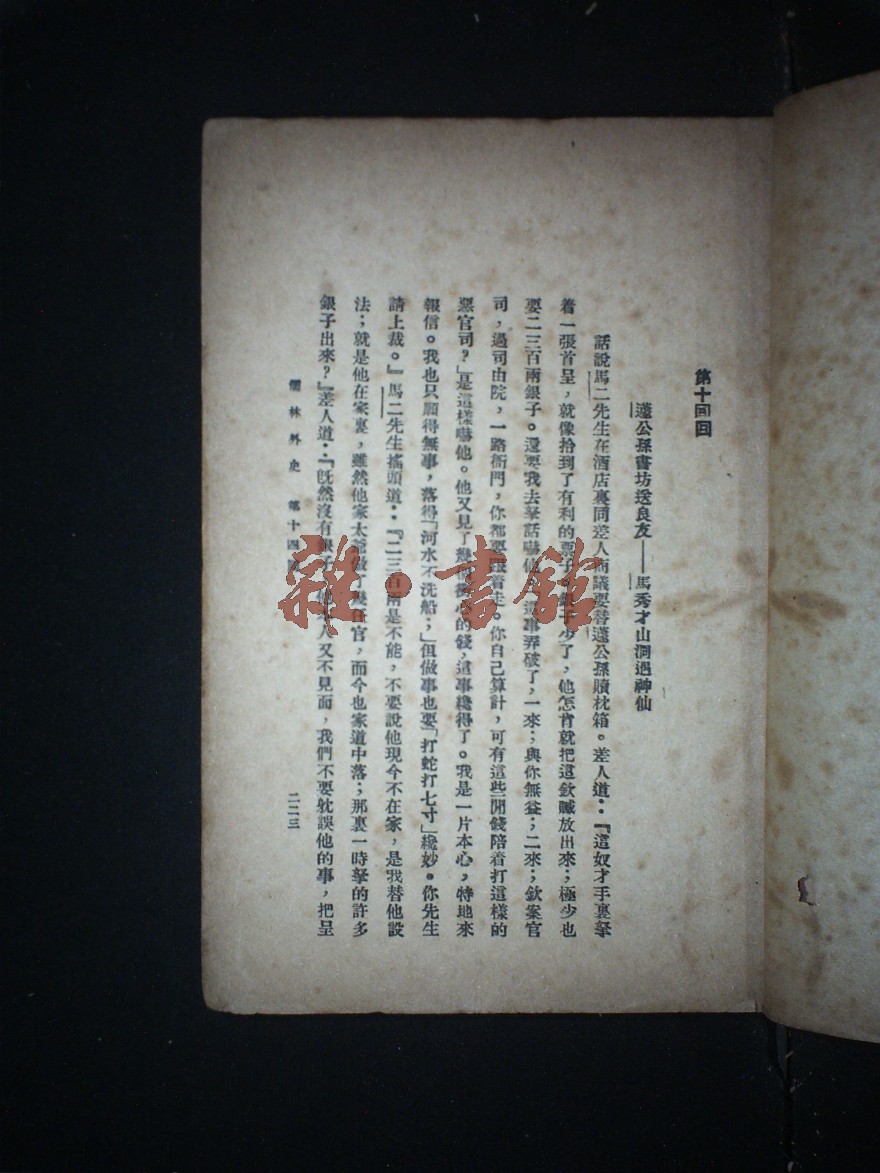 第十四回
蘧公孫書坊送良友——馬秀才山洞遇神仙
話說馬二先生在酒店裏同差人商議要替蘧公孫贖枕箱。差人道：『這奴才手裏拏
着一張首呈，就像拾到了有利的票子。銀子少了，他怎肯就把這欽贓放出來；極少也
要二三百兩銀子。還要我去拏話嚇他：這事弄破了，一來；與你無益；二來；欽案官
司，過司由院，一路衙門，你都要跟着走。你自己算計，可有這些閒錢陪着打這樣的
惡官司？」是這樣嚇他。他又見了幾個衝心的錢，這事纔得了。我是一片本心，特地來
報信。我也只願得無事，落得「河水不洗船；」但做事也要「打蛇打七寸」纔妙。你先生
請上裁。』馬二先生搖頭道：『二三百兩是不能，不要說他現今不在家，是我替他設
法；就是他在家裏，雖然他家太爺做了幾任官，而今也家道中落；那裏一時拏的許多
銀子出來？』差人道：『旣然沒有銀子，他本人又不見面，我們不要躭誤他的事，把呈
儒林外史 第十四回 二二三
雜·書館